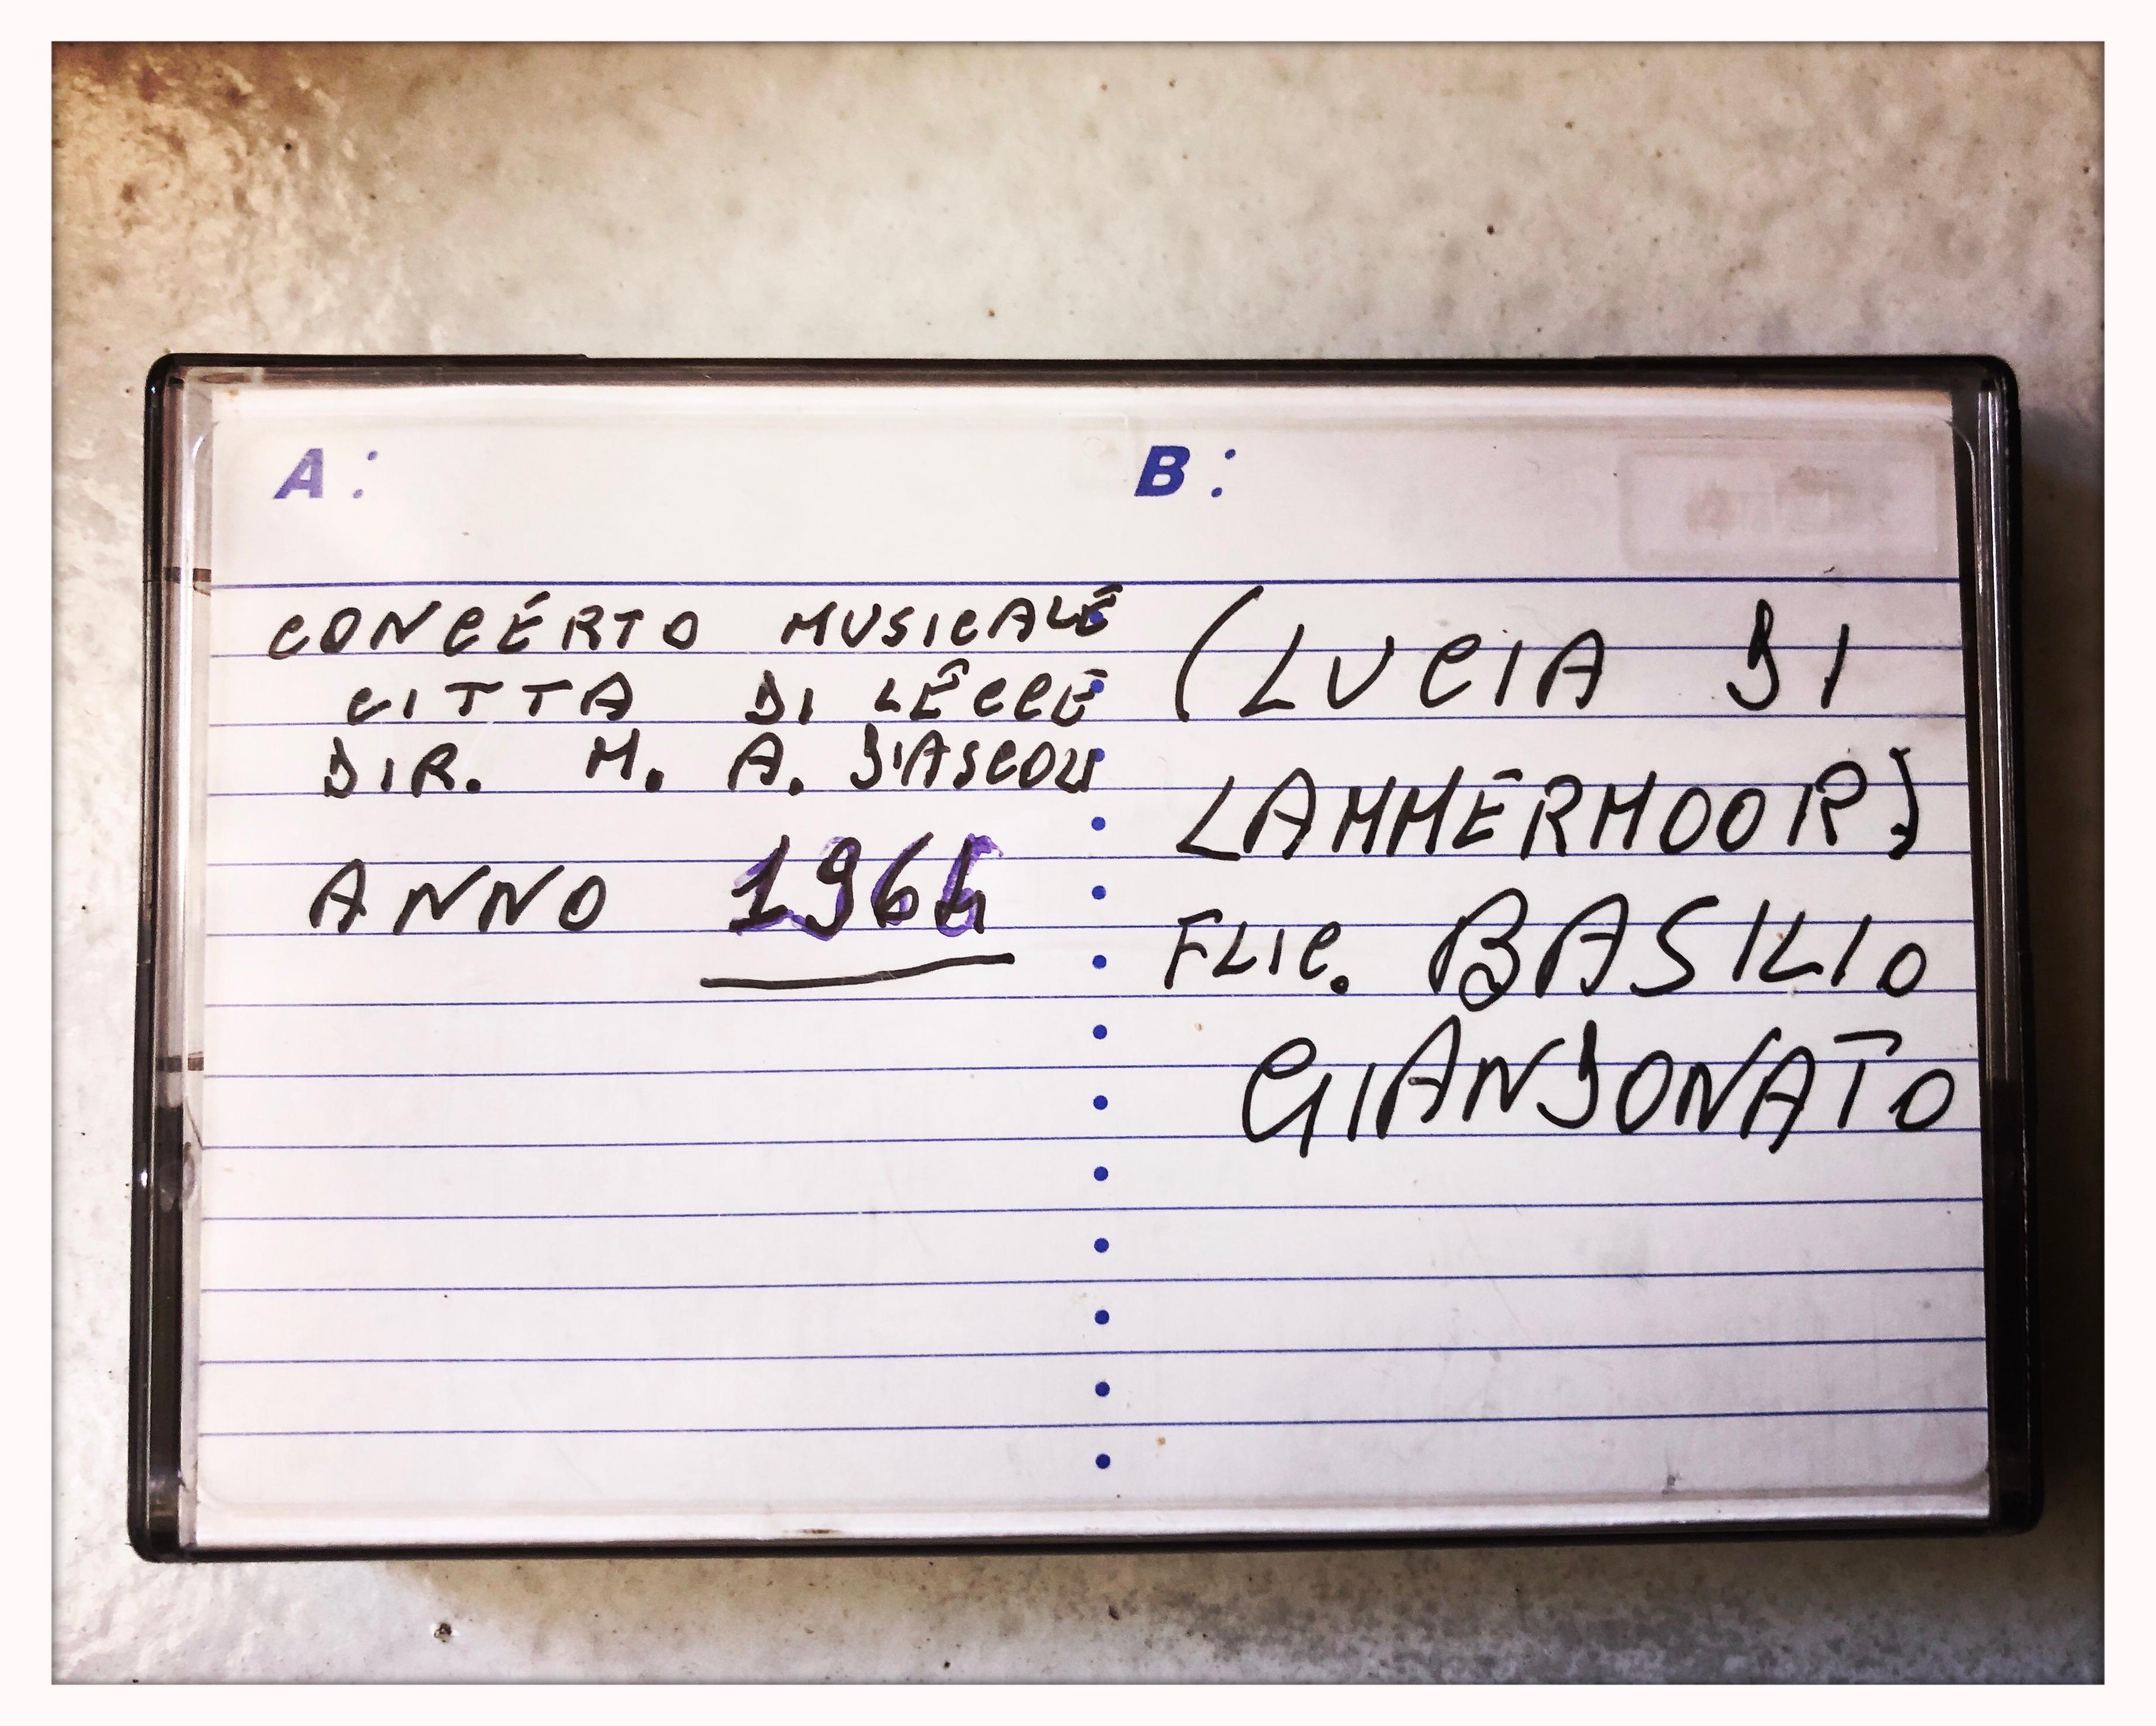 A:
CONCERTO MUSICALE
CITTA DI LECCE
DIR. M. A. D'ASCOLI
ANNO 1964
B:
(LUCIA DI
LAMMERMOOR)
FLIC. BASILIO
GIANDONATO